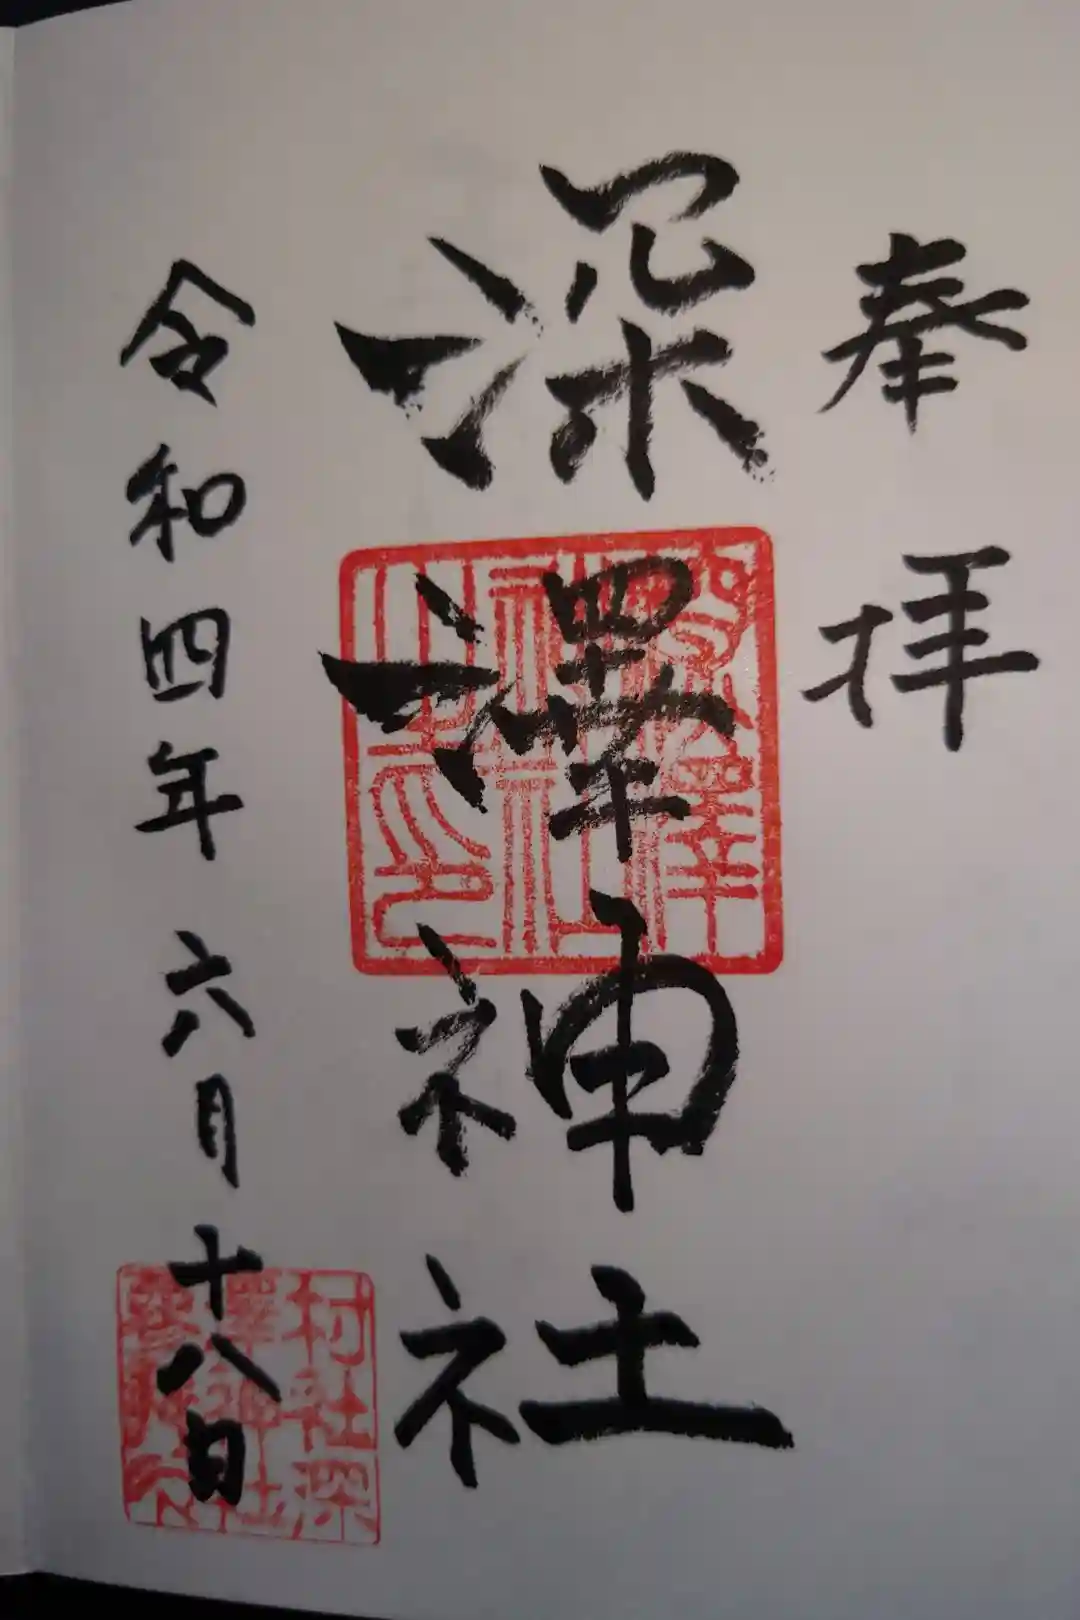 奉拝
深澤神社
令和四年六月十八日
深澤
神社
之印
村社深
澤神社